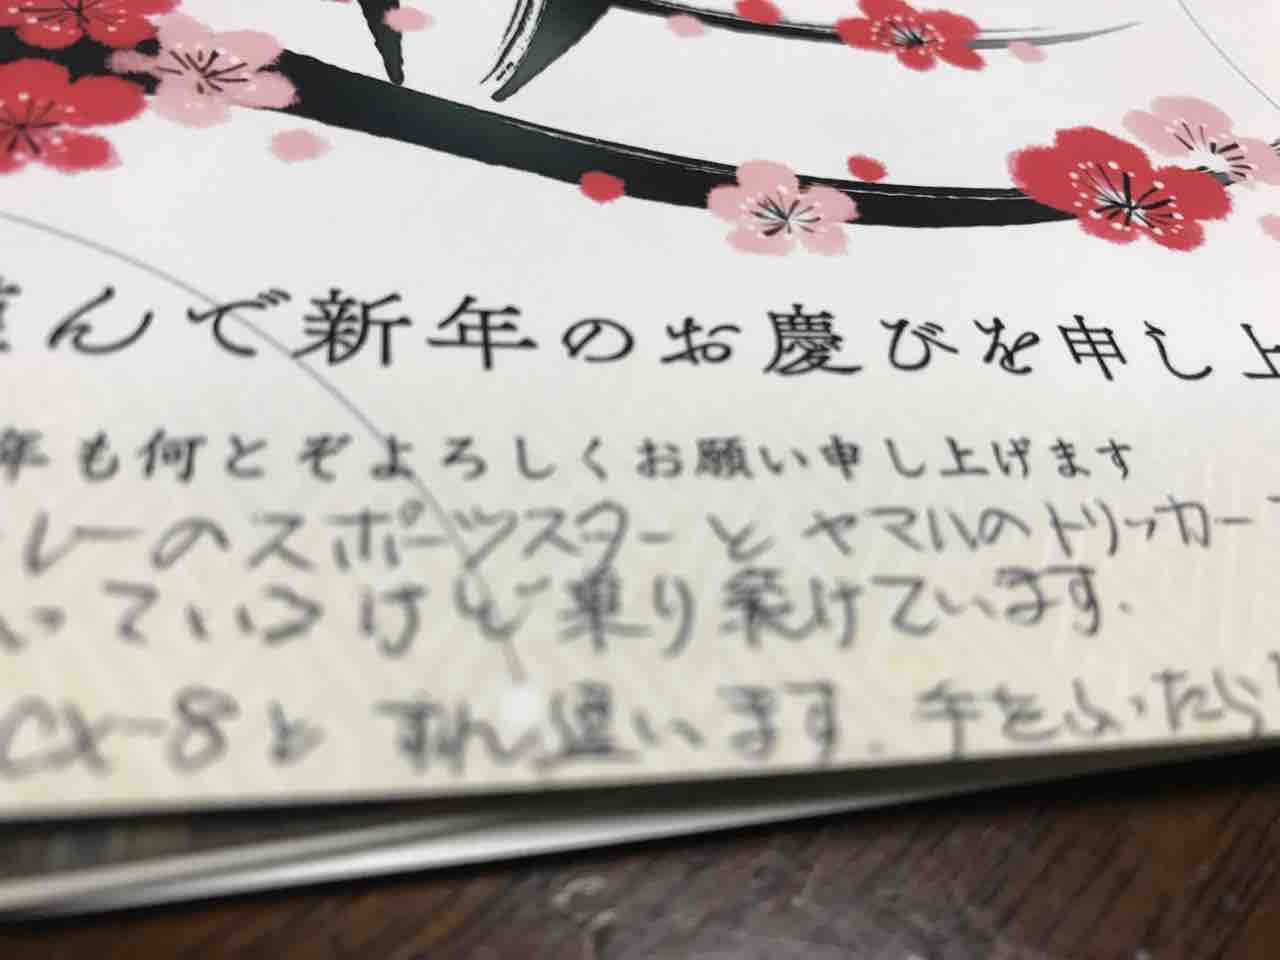 んで新年のお慶びを申し上
年も何とぞよろしくお願い申し上げます
レーのスポーツスターとヤマハのトリッカー
っているけど乗り続けています.
CX-8とすれ違います.手をふったら